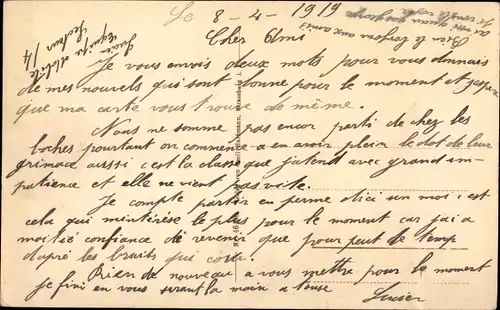 Le 8-4-1919
Cher Ami
Je vous envois deux mots pour vous donnais
de mes nouvels qui sont bonne pour le moment et j'espere
que ma carte vous trouve de même.
Nous ne somme pas encor parti de chez les
boches pourtant on commence a en avoir plein le dot de leur
grimace aussi c'est la classe que j'atend avec grand im-
patience et elle ne vient pas vite.
Je compte partir en perme d'ici un moi c'est
cela qui m'intérèse le plus pour le moment car j'ai a
moitié confiance de revenir que pour peut de temp
d'apré les bruits qui cour.
Rien de nouveau a vous mettre pour le moment
je fini en vous serant la main a tous.
Lucien